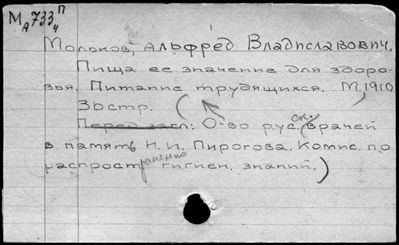 М А733 П 4
Молоков, Альфред Владиславович.
Пища ее значение для здоро-
вья. Питание трудящихся. М, 1910
36стр.
(Перед загл: О-во русск. врачей
в память Н. И. Пирогова. Комис. по
распространению гигиен. знаний.)